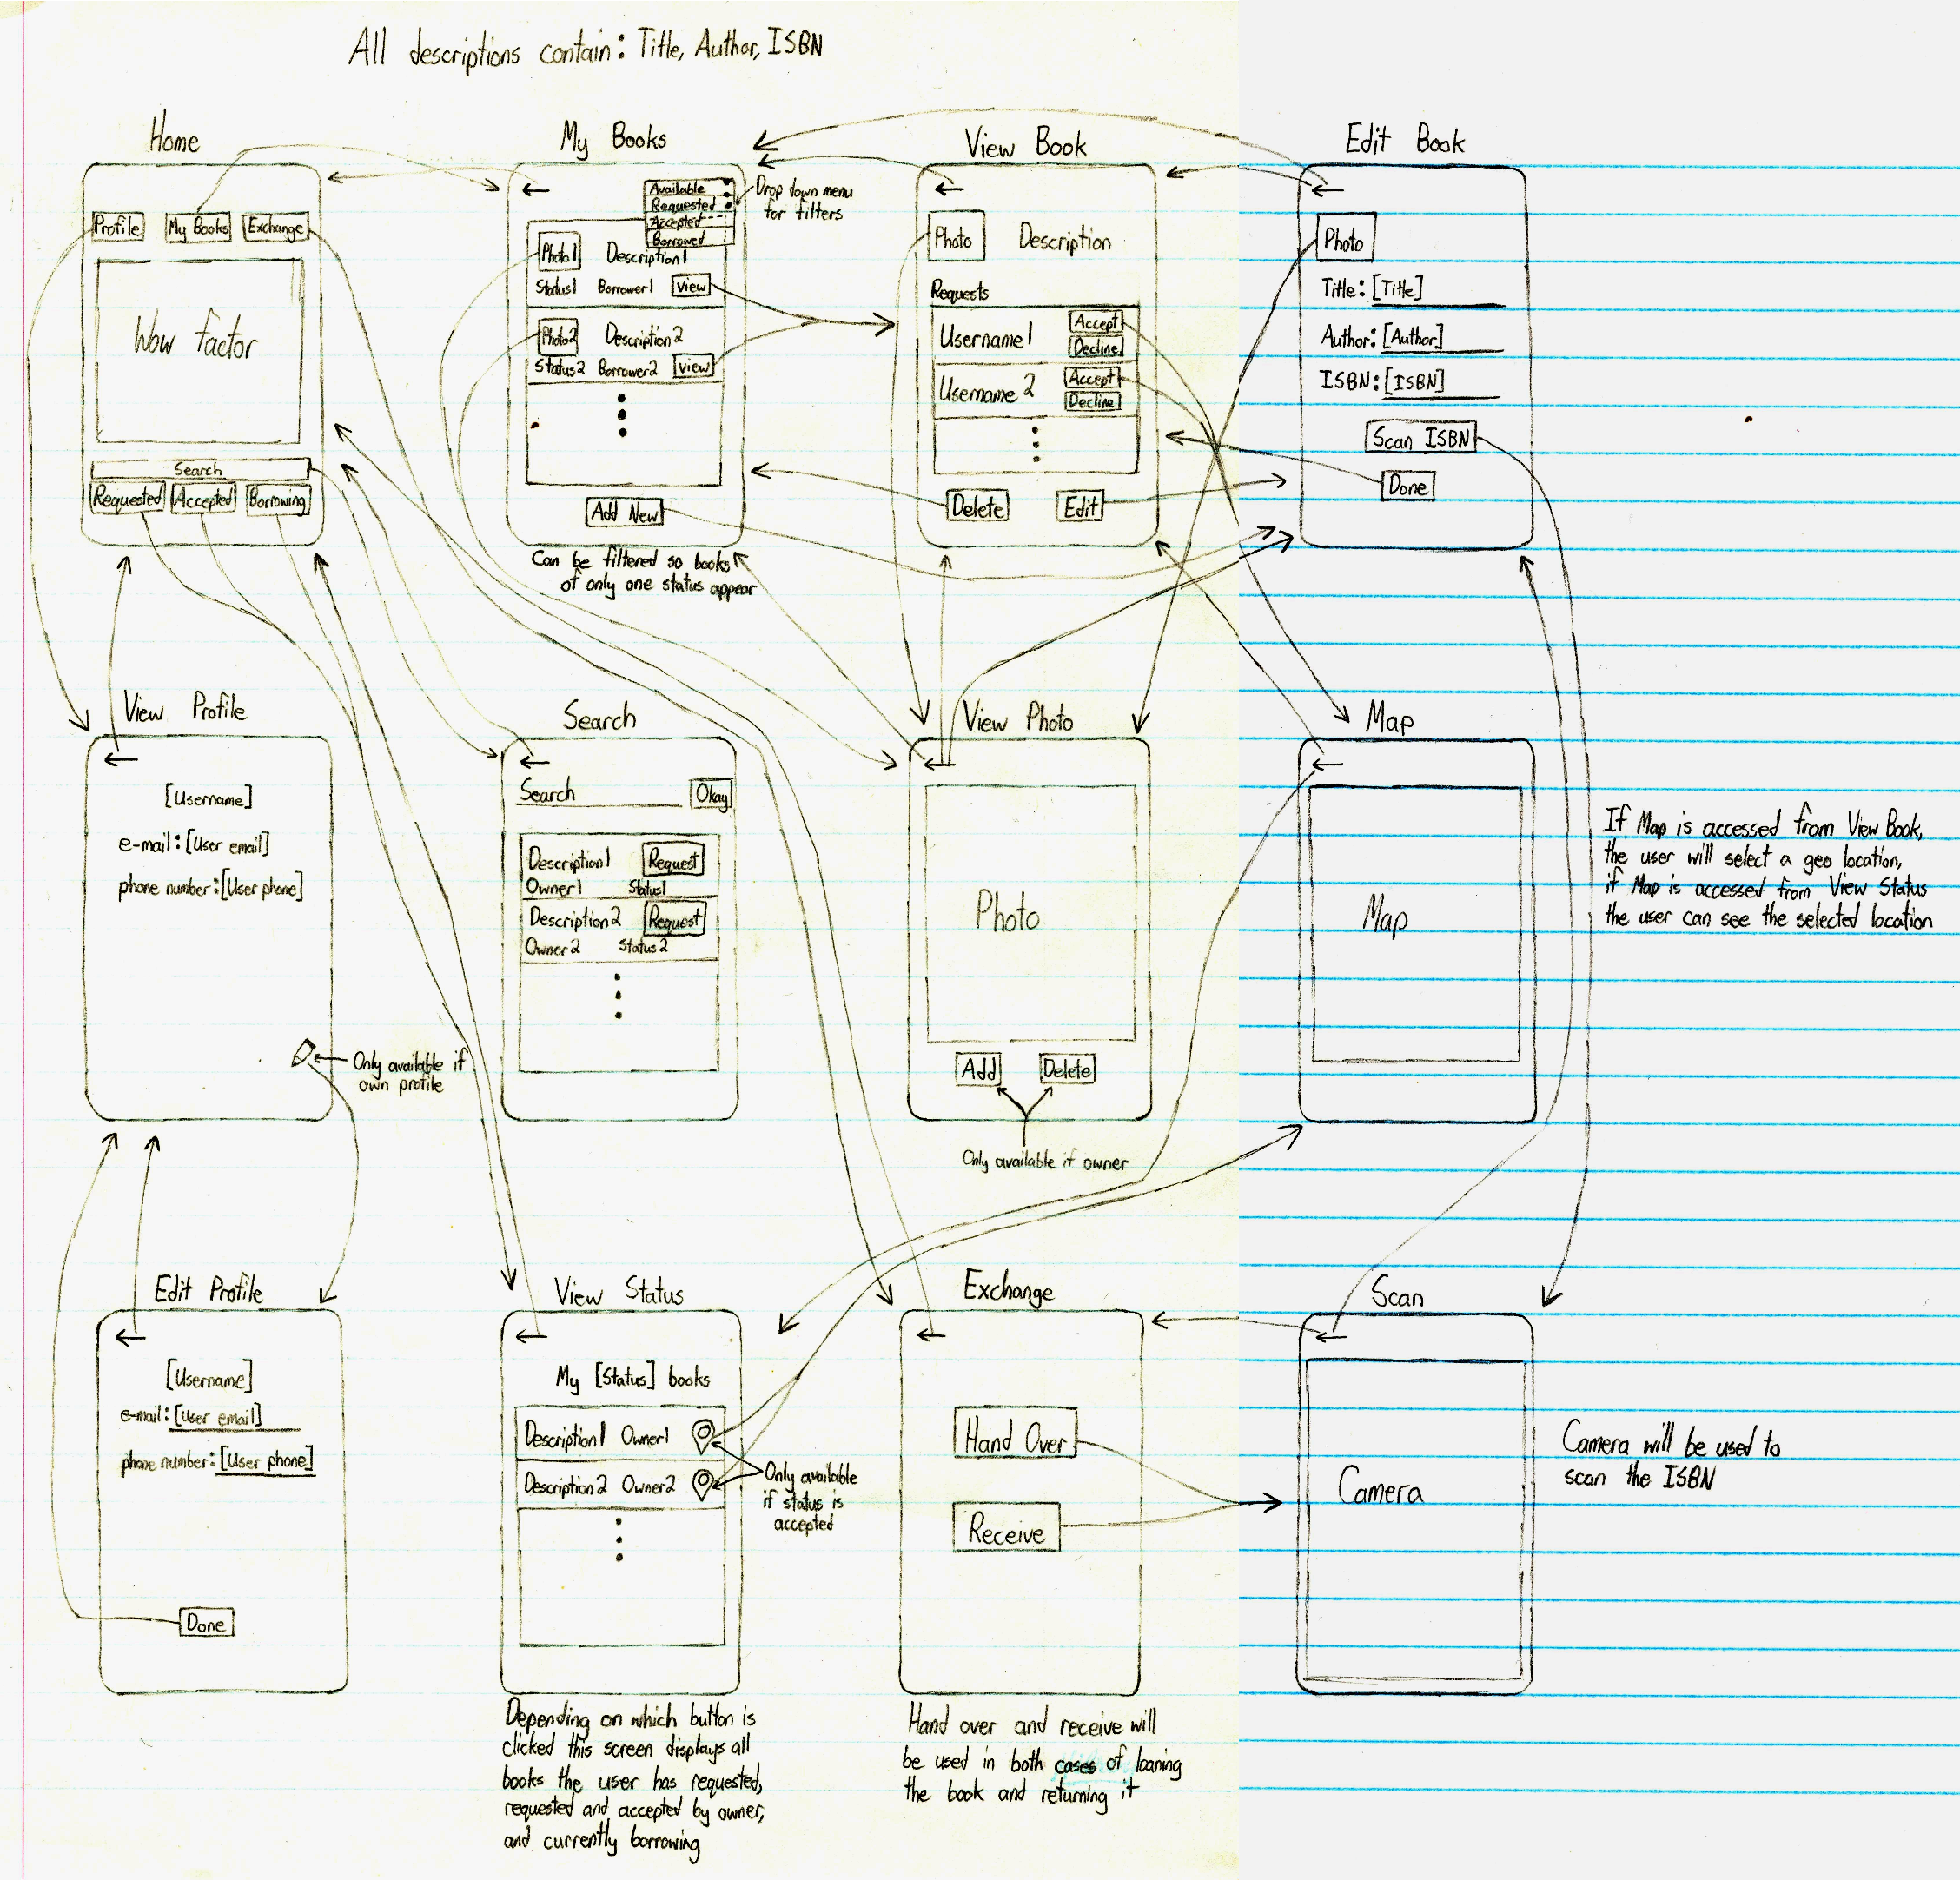 All descriptions contain: Title, Author, ISBN
Home
Profile
My Books
Exchange
Wow factor
Search
Requested
Accepted
Borrowing
My Books
Available
Requested
Accepted
Borrowed
Drop down menu
for filters
Photo1
Description1
Status1
Borrower1
View
Photo2
Description2
Status2
Borrower2
View
Add New
Can be filtered so books
of only one status appear
View Book
Photo
Description
Requests
Username1
Accept
Decline
Username2
Accept
Decline
Delete
Edit
Edit Book
Photo
Title: [Title]
Author: [Author]
ISBN: [ISBN]
Scan ISBN
Done
View Profile
[Username]
e-mail: [User email]
phone number: [User phone]
Only available if
own profile
Search
Search
Okay
Description1
Request
Owner1
Status1
Description2
Request
Owner2
Status2
View Photo
Photo
Add
Delete
Only available if owner
Map
Map
If Map is accessed from View Book,
the user will select a geo location,
if Map is accessed from View Status
the user can see the selected location
Edit Profile
[Username]
e-mail: [User email]
phone number: [User phone]
Done
View Status
My [Status] books
Description1 Owner1
Description2 Owner2
Only available
if status is
accepted
Depending on which button is
clicked this screen displays all
books the user has requested,
requested and accepted by owner,
and currently borrowing
Exchange
Hand Over
Receive
Hand over and receive will
be used in both cases of loaning
the book and returning it
Scan
Camera
Camera will be used to
scan the ISBN